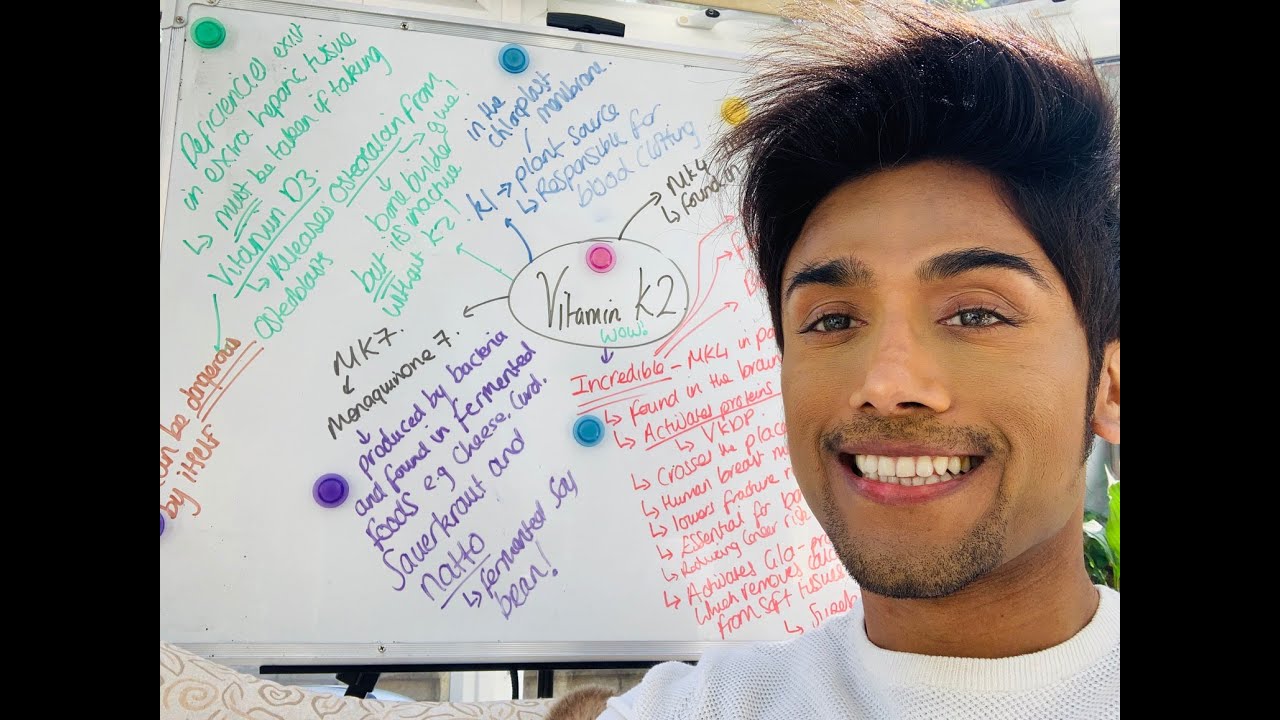 Deficiencies exist
in extra hepatic tissue
↳ must be taken if taking
Vitamin D3
↳ Releases osteocalcin from
osteoblasts
bone builder → glue!
but its inactive
without K2!
can be dangerous
by itself
in the
chloroplast
membrane.
K1 → plant source
↳ Responsible for
blood clotting
MK4
↳ found in
Vitamin K2
WOW!
MK7.
Menaquinone 7.
produced by bacteria
and found in fermented
foods e.g cheese, curd.
Sauerkraut and
natto
↳ fermented soy
bean!
Incredible - MK4 in
↳ found in the brain
↳ Activates proteins
↳ VKDP
↳ Crosses the
↳ Human breast
↳ lowers fracture
↳ Essential for
↳ Reducing cancer risk
↳ Activates Gla-
which removes
from soft tissues